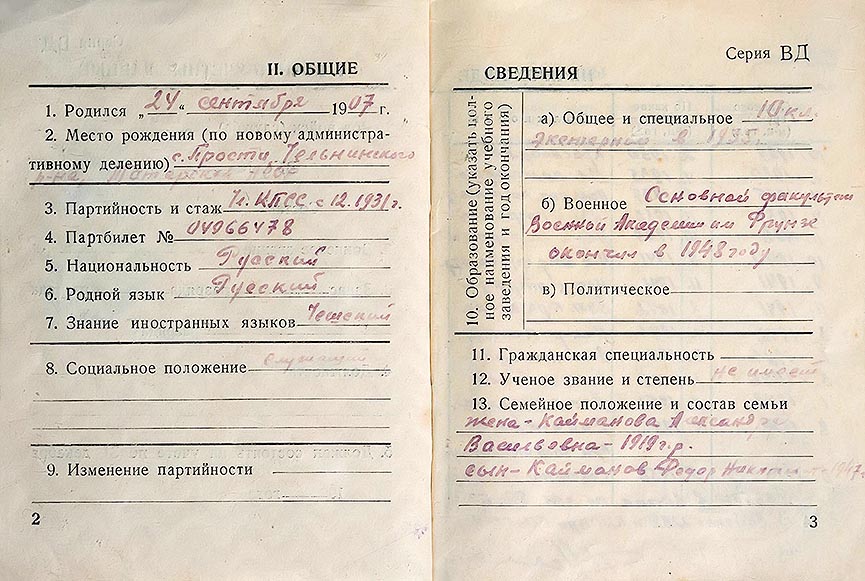 II. ОБЩИЕ
1. Родился „24“ сентября 1907 г.
2. Место рождения (по новому администра-
тивному делению) с. Прости, Челнинского
р-на, Татарской
3. Партийность и стаж Чл. КПСС с 12.1931 г.
4. Партбилет № 04966478
5. Национальность Русский
6. Родной язык Русский
7. Знание иностранных языков Чешский
8. Социальное положение служащий
9. Изменение партийности
2
Серия ВД
СВЕДЕНИЯ
10. Образование (указать пол-
ное наименование учебного
заведения и год окончания)
а) Общее и специальное 10 кл.
экстерном в 1955г.
б) Военное Основной факультет
Военной Академии им Фрунзе
окончил в 1948 году
в) Политическое
11. Гражданская специальность
12. Ученое звание и степень не имеет
13. Семейное положение и состав семьи
жена - Кайманова Александра
Васильевна - 1919 г.р.
сын - Кайманов Федор 1947
3